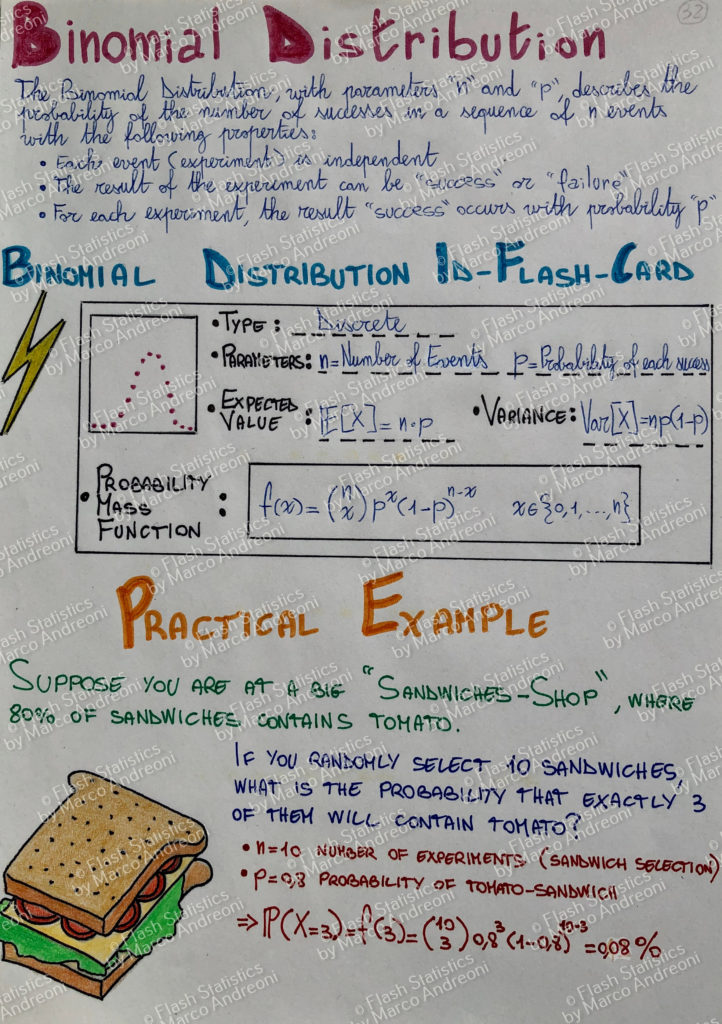 32
Binomial Distribution
The Binomial Distribution, with parameters "n" and "p", describes the
probability of the number of successes in a sequence of n events
with the following properties:
• Each event (experiment) is independent
• The result of the experiment can be "success" or "failure"
• For each experiment, the result "success" occurs with probability "p"
BINOMIAL DISTRIBUTION ID-FLASH-CARD
• TYPE: Discrete
• PARAMETERS: n=Number of Events p=Probability of each success
• EXPECTED VALUE: E[X]=n·p • VARIANCE: Var[X]=np(1-p)
• PROBABILITY MASS FUNCTION: f(x)=(n x) p^x (1-p)^n-x x∈{0,1,...,n}
PRACTICAL EXAMPLE
SUPPOSE YOU ARE AT A BIG "SANDWICHES-SHOP", WHERE
80% OF SANDWICHES CONTAINS TOMATO.
IF YOU RANDOMLY SELECT 10 SANDWICHES,
WHAT IS THE PROBABILITY THAT EXACTLY 3
OF THEM WILL CONTAIN TOMATO?
• n=10 NUMBER OF EXPERIMENTS (SANDWICH SELECTION)
• p=0,8 PROBABILITY OF TOMATO-SANDWICH
⇒ P(X=3)=f(3)=(10 3) 0,8^3 (1-0,8)^10-3 =0,08%
© Flash Statistics
by Marco Andreoni